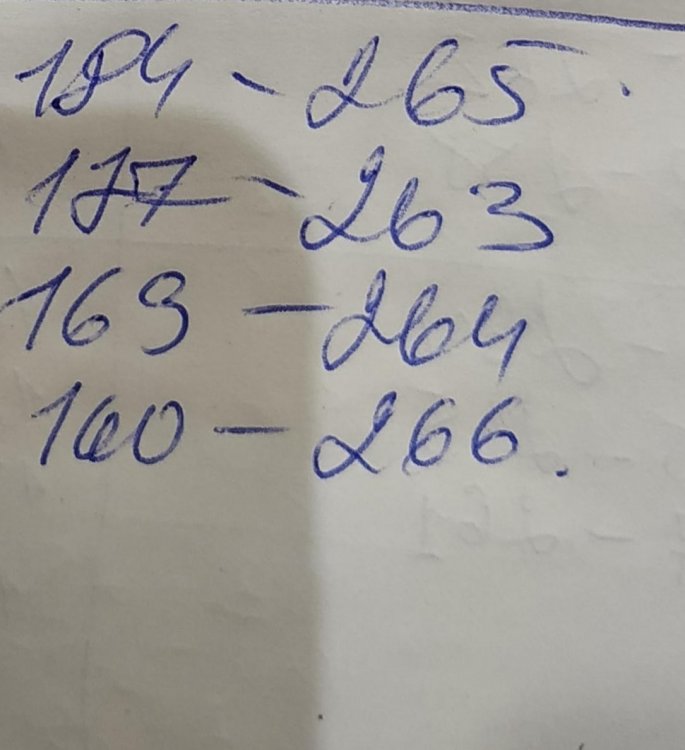 184 - 265.
177 - 263
169 - 264
160 - 266.